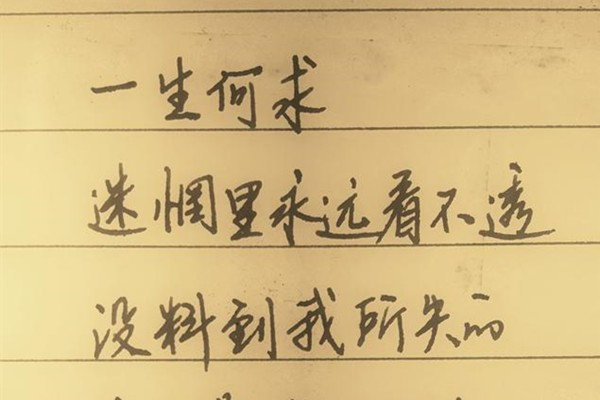 一生何求
迷惘里永远看不透
没料到我所失的